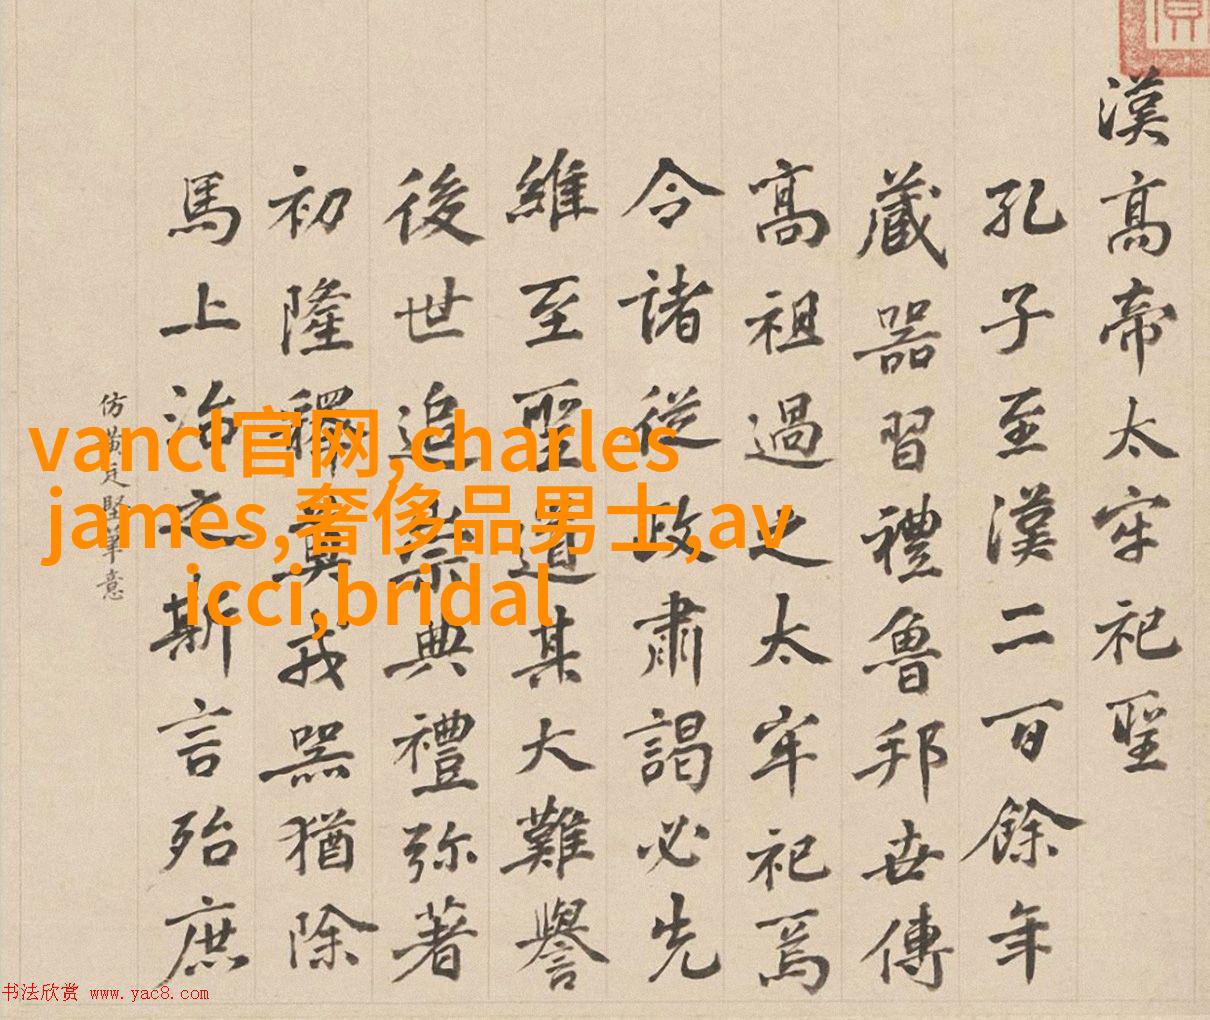 漢高帝太牢祀聖
孔子至漢二百餘年
藏器習禮魯邦世傳
高祖過之太牢祀焉
令諸從政肅謁必先
維至聖道其大難譽
後世追崇典禮弥著
初隆釋奠戎器猶除
馬上治之斯言殆庶
仿黃庭堅筆意
vancl官网,charles
james,奢侈品男士,av
icci,bridal
书法欣赏 www.yac8.com